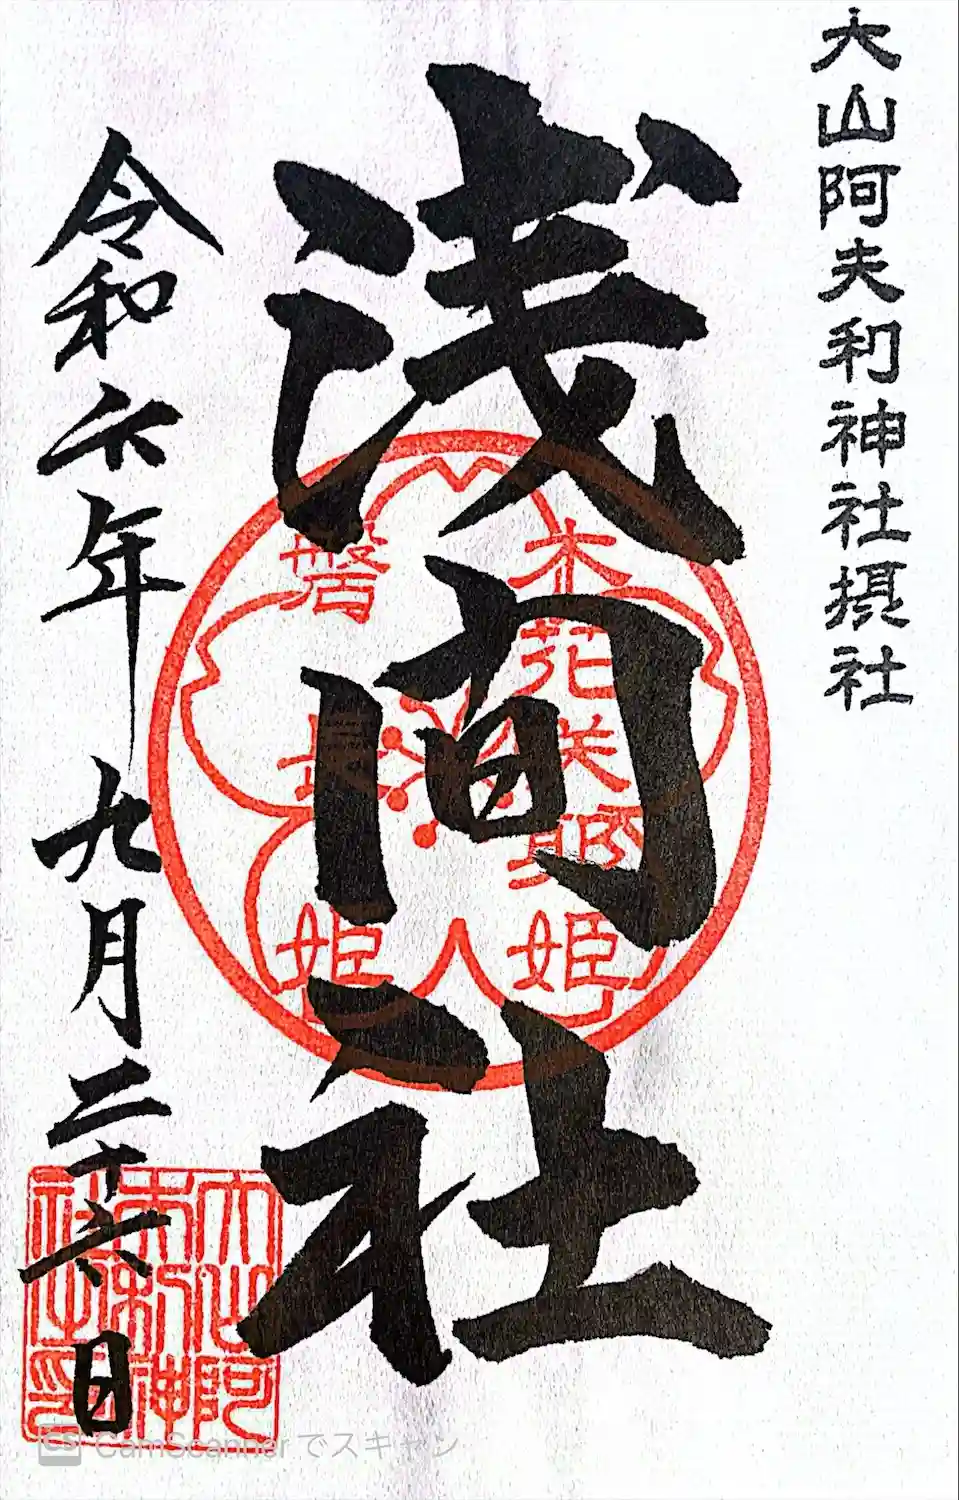 大山阿夫利神社摂社
浅間社
木花咲耶姫
磐長姫
令和六年九月二十六日
大山阿夫利神社之印
CS CamScanner でスキャン